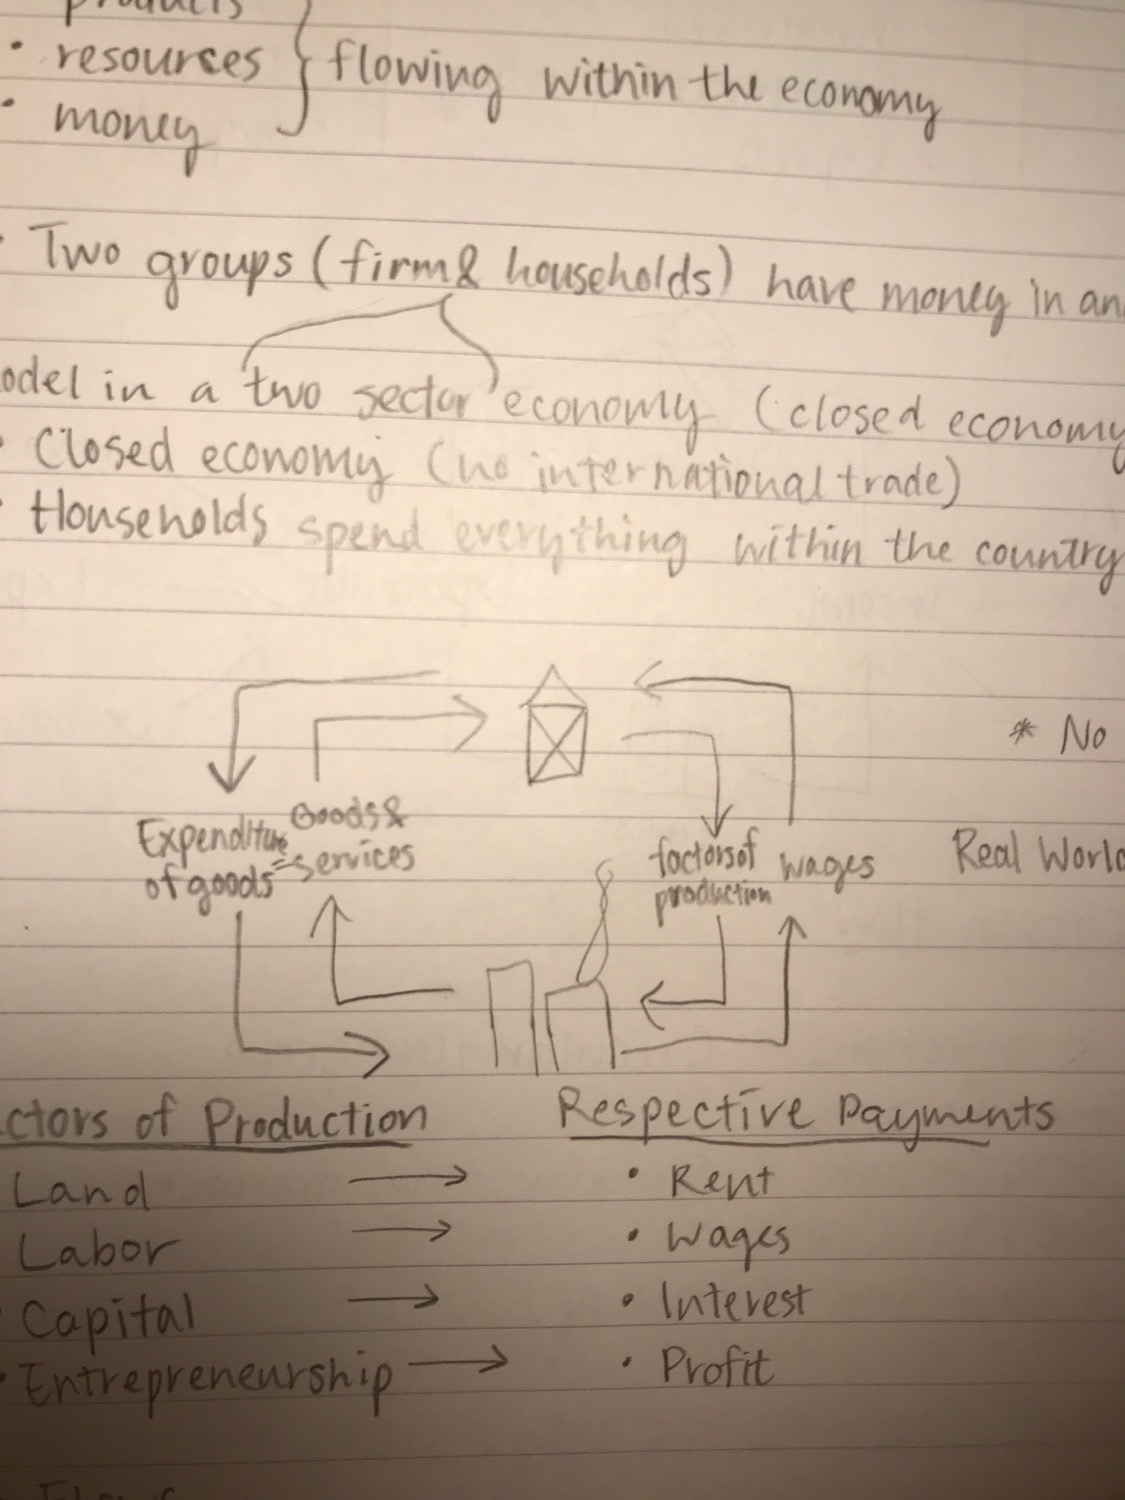 products
• resources } flowing within the economy
• money
• Two groups (firm & households) have money in an
odel in a two sector economy (closed economy
• Closed economy (no international trade)
• Households spend everything within the country
* No
Expenditure of goods =
Goods & services
factors of production
wages
Real World
ctors of Production
Respective Payments
Land → • Rent
Labor → • Wages
Capital → • Interest
• Entrepreneurship → • Profit